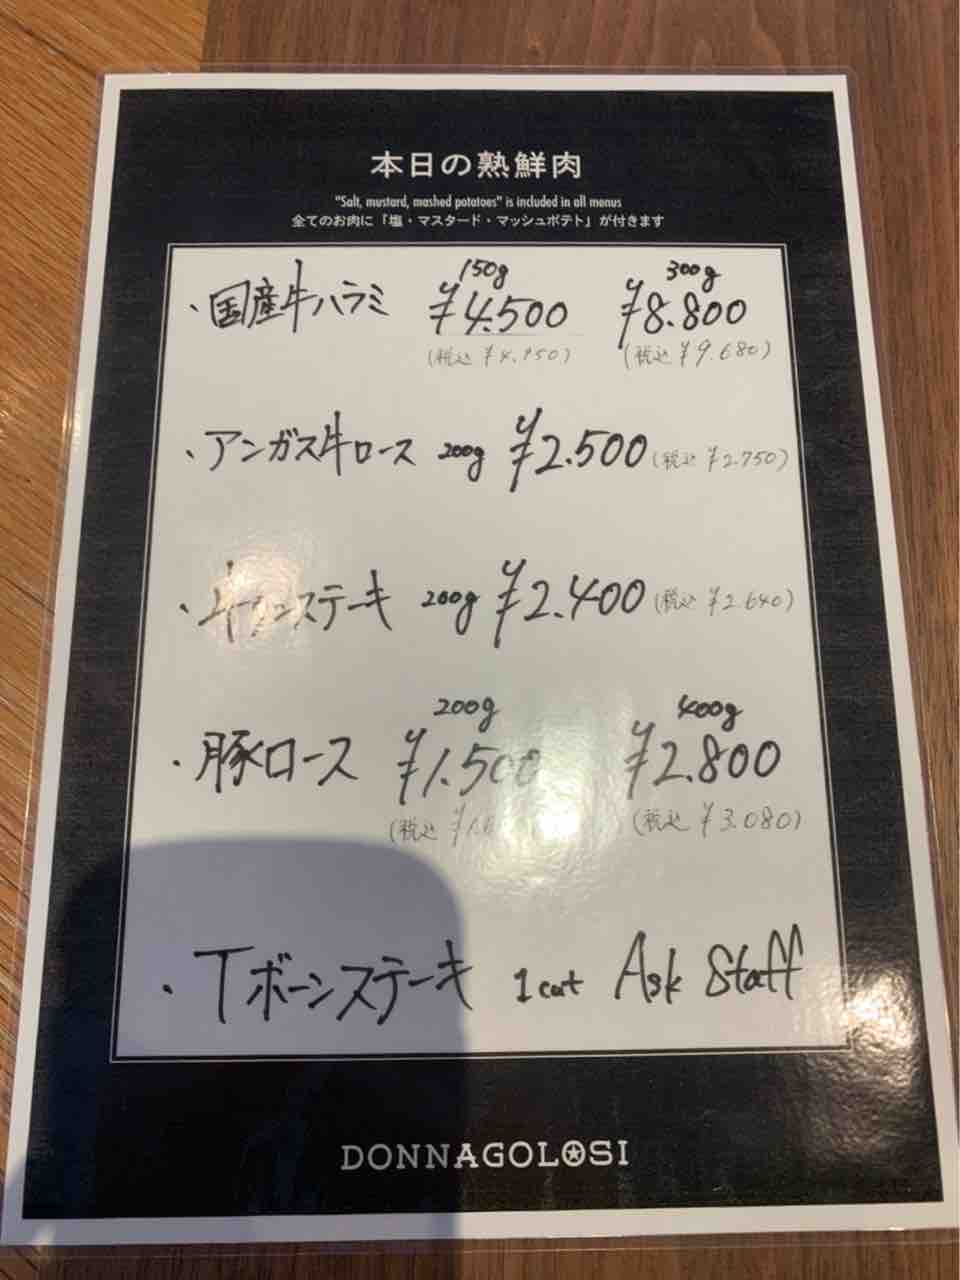 本日の熟鮮肉
"Salt, mustard, mashed potatoes" is included in all menus
全てのお肉に「塩・マスタード・マッシュポテト」が付きます
150g 300g
・国産牛ハラミ ¥4.500 ¥8.800
(税込 ¥4.950) (税込 ¥9.680)
・アンガス牛ロース 200g ¥2.500 (税込 ¥2.750)
・牛タンステーキ 200g ¥2.400 (税込 ¥2.640)
200g 400g
・豚ロース ¥1.500 ¥2.800
(税込 (税込 ¥3.080)
・Tボーンステーキ 1cut Ask Staff
DONNAGOLOSI